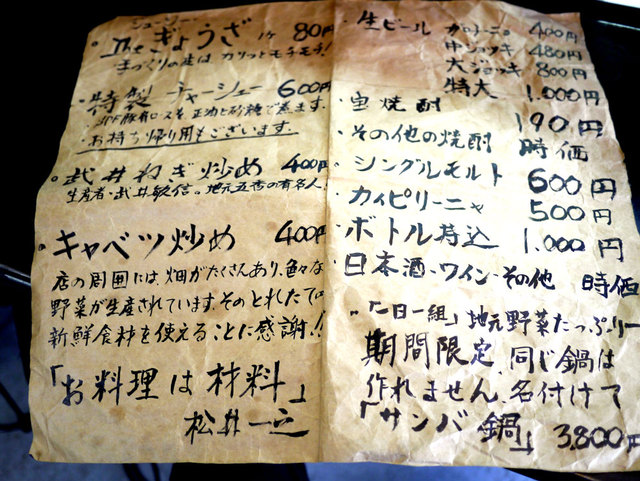 シューシー
・The ぎょうざ 1ケ 80円
手づくりの皮は、カリッとモチモチ!
・特製 チャーシュー 600円
SPF豚肩ロースを正油と砂糖で煮ます.
・お持ち帰り用もございます.
・武井ねぎ炒め 400円
生産者・武井敏信。地元五香の有名人!
・キャベツ炒め 400円
店の周囲には、畑がたくさんあり、色々な
野菜が生産されています.そのとれたての
新鮮食材を使えることに感謝!!
「お料理は材料」
松井一之
・生ビール ガローニョ 400円
中ジョッキ 480円
大ジョッキ 800円
特大 1.000円
・宝焼酎 190円
・その他の焼酎 時価
・シングルモルト 600円
・カイピリーニャ 500円
・ボトル持込 1.000円
・日本酒・ワイン・その他 時価
「一日一組」地元野菜たっぷり
期間限定、同じ鍋は
作れません、名付けて
「サンバ鍋」 3.800円